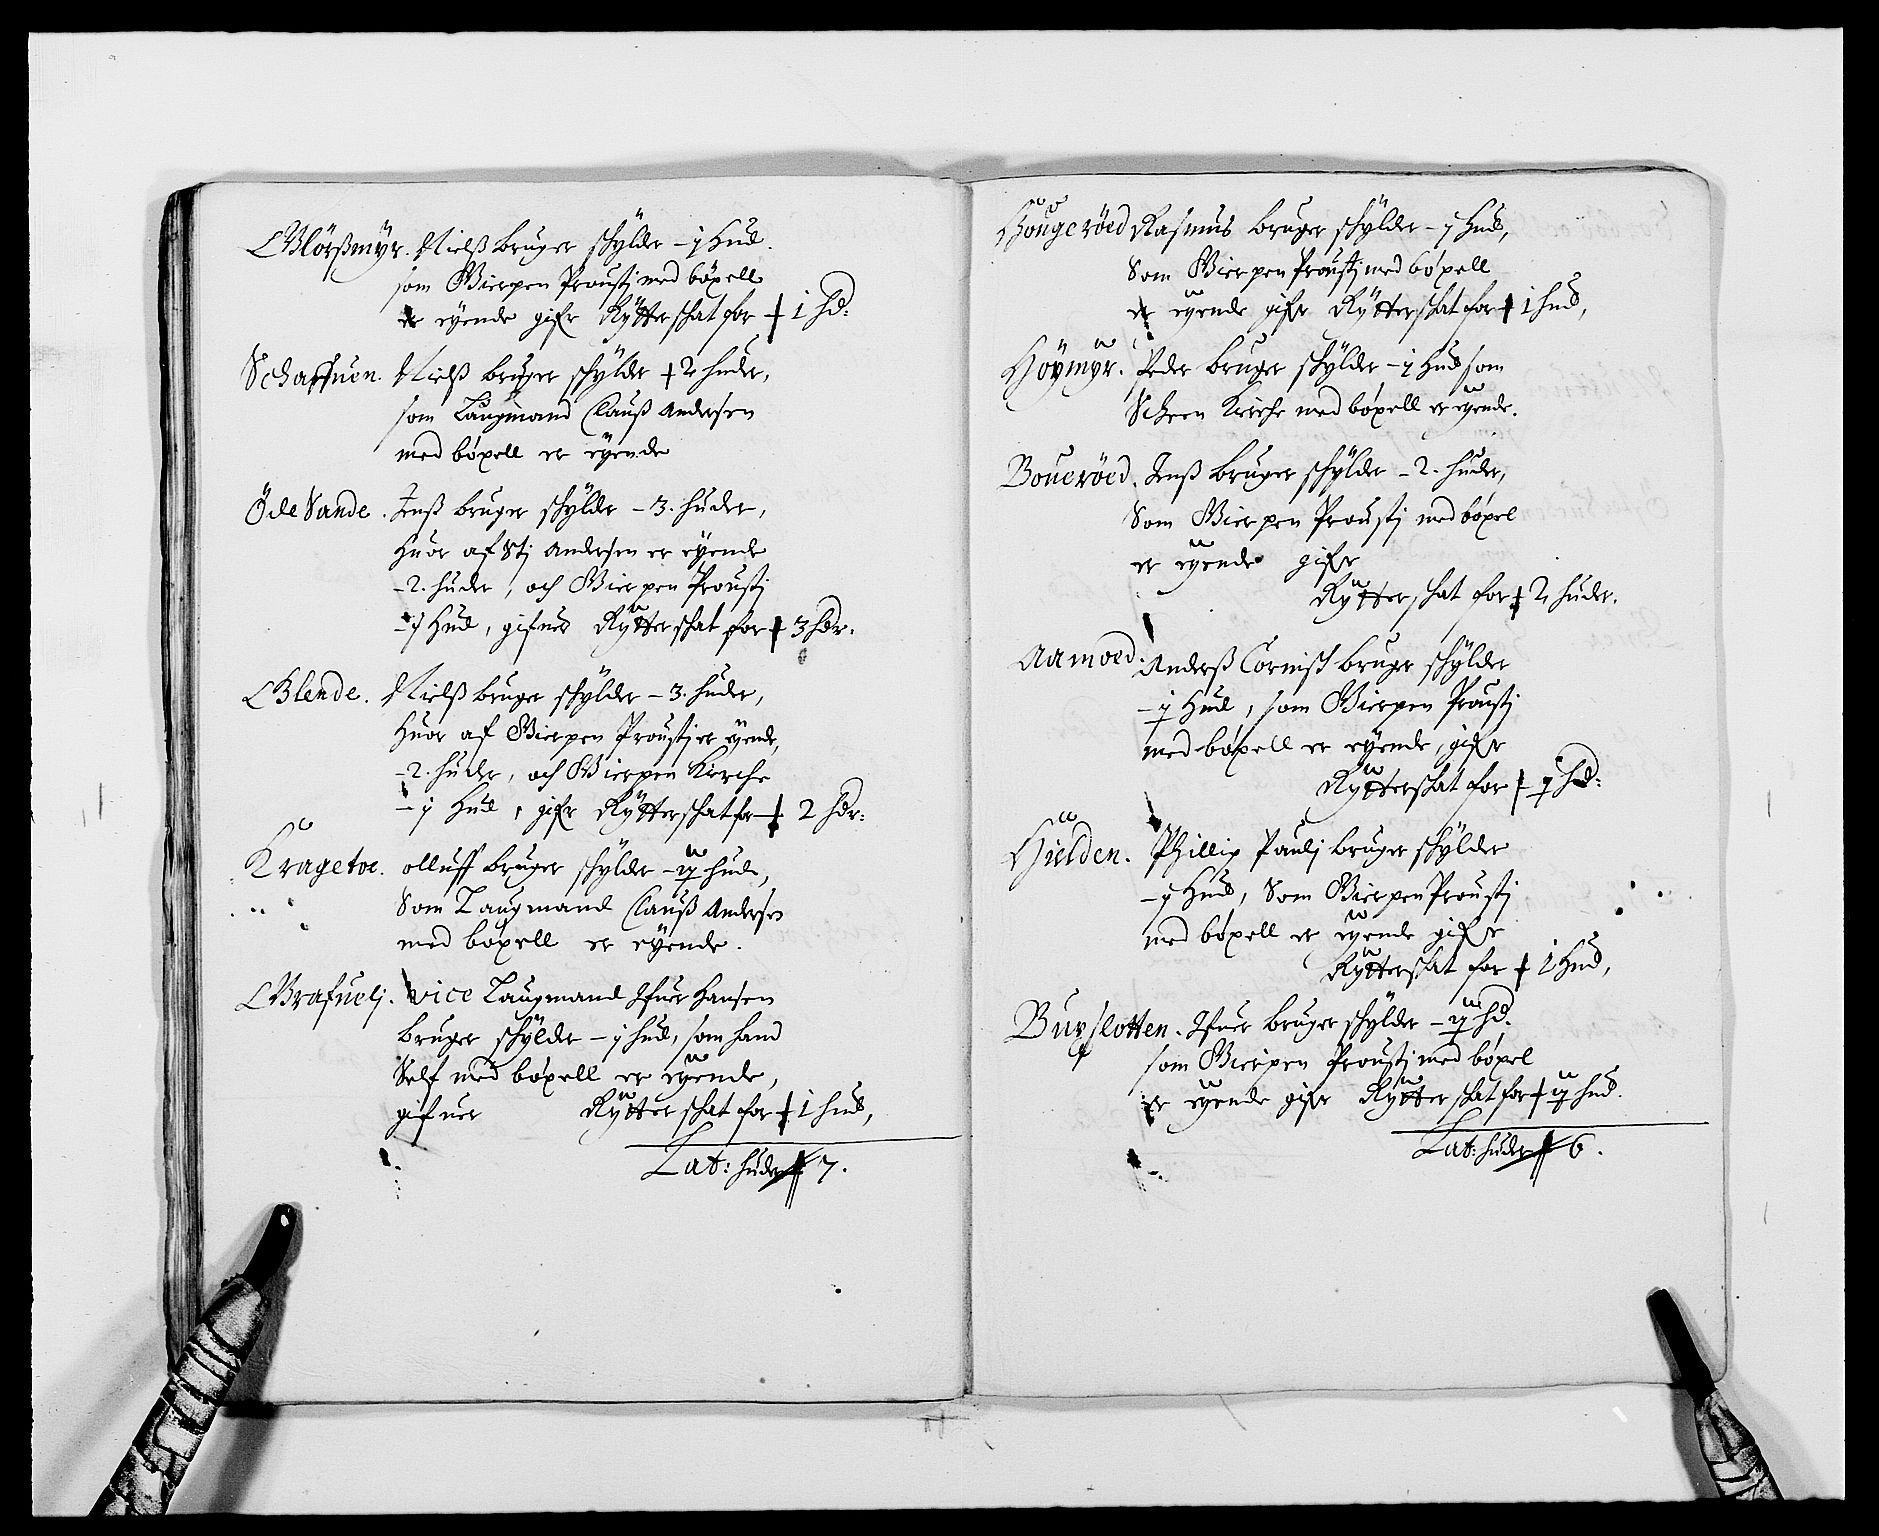 Glörßmÿr. Nielß bruger schÿlder - j Hud.
som Gierpen Proustj med böxell
er eÿende gifr Rÿtterschat for - 1 hd:
Schaffuen. Nielß bruger schÿlder - 2 huder,
som Laugmand Clauß Andersen
med böxell er eÿende
Öde Sande. Jenß bruger schÿlder - 3. huder,
Huor af Stj Andersen er eÿende
- 2. huder, och Gierpen Proustj
- j Hud, gifuer Rÿtterschat for - 3 hdr.
Glende. Nielß bruger schÿlder - 3. huder,
Huor af Gierpen Proustj er eÿende,
- 2. huder, och Gierpen Kirche
- j Hud, gifr Rÿtterschat for - 2 hdr:
Kragetoe. olluff bruger schÿlder - hude,
Som Laugmand Clauß Andersen
med böxell er eÿende.
Grafuelj. vice Laugmand Ifuer Hansen
bruger schÿlder - j hud, som hand
Self med böxell er eÿende,
gifuer Rÿtterschat for - 1 hud,
Lat: huder 7.
Hougeröed Rasmus bruger schÿlder - j Hud,
Som Gierpen Proustj med böxell
er eÿende gifr Rÿtterschat for - 1 hud,
Höÿmÿr. Peder bruger schÿlder - j Hud som
Scheen Kirche med böxell er eÿende.
Boueröed. Jenß bruger schÿlder - 2. huder,
Som Gierpen Proustj med böxel
er eÿende gifr
Rÿtterschat for - 2 huder.
Aamoed. Anderß Cornisch bruger schÿlder
- Hud, som Gierpen Proustj
med böxell er eÿende, gifr
Rÿtterschat for - hd:
Hielden. Phillip Paulj bruger schÿlder
- j Hud, Som Gierpen Proustj
med böxell er eÿende gifr
Rÿtterschat for - 1 Hud,
Ifuer bruger schÿlder - hd.
som Gierpen Proustj med böxel
er eÿende gifr Rÿtterschat for - hud.
Lat: huder 6.